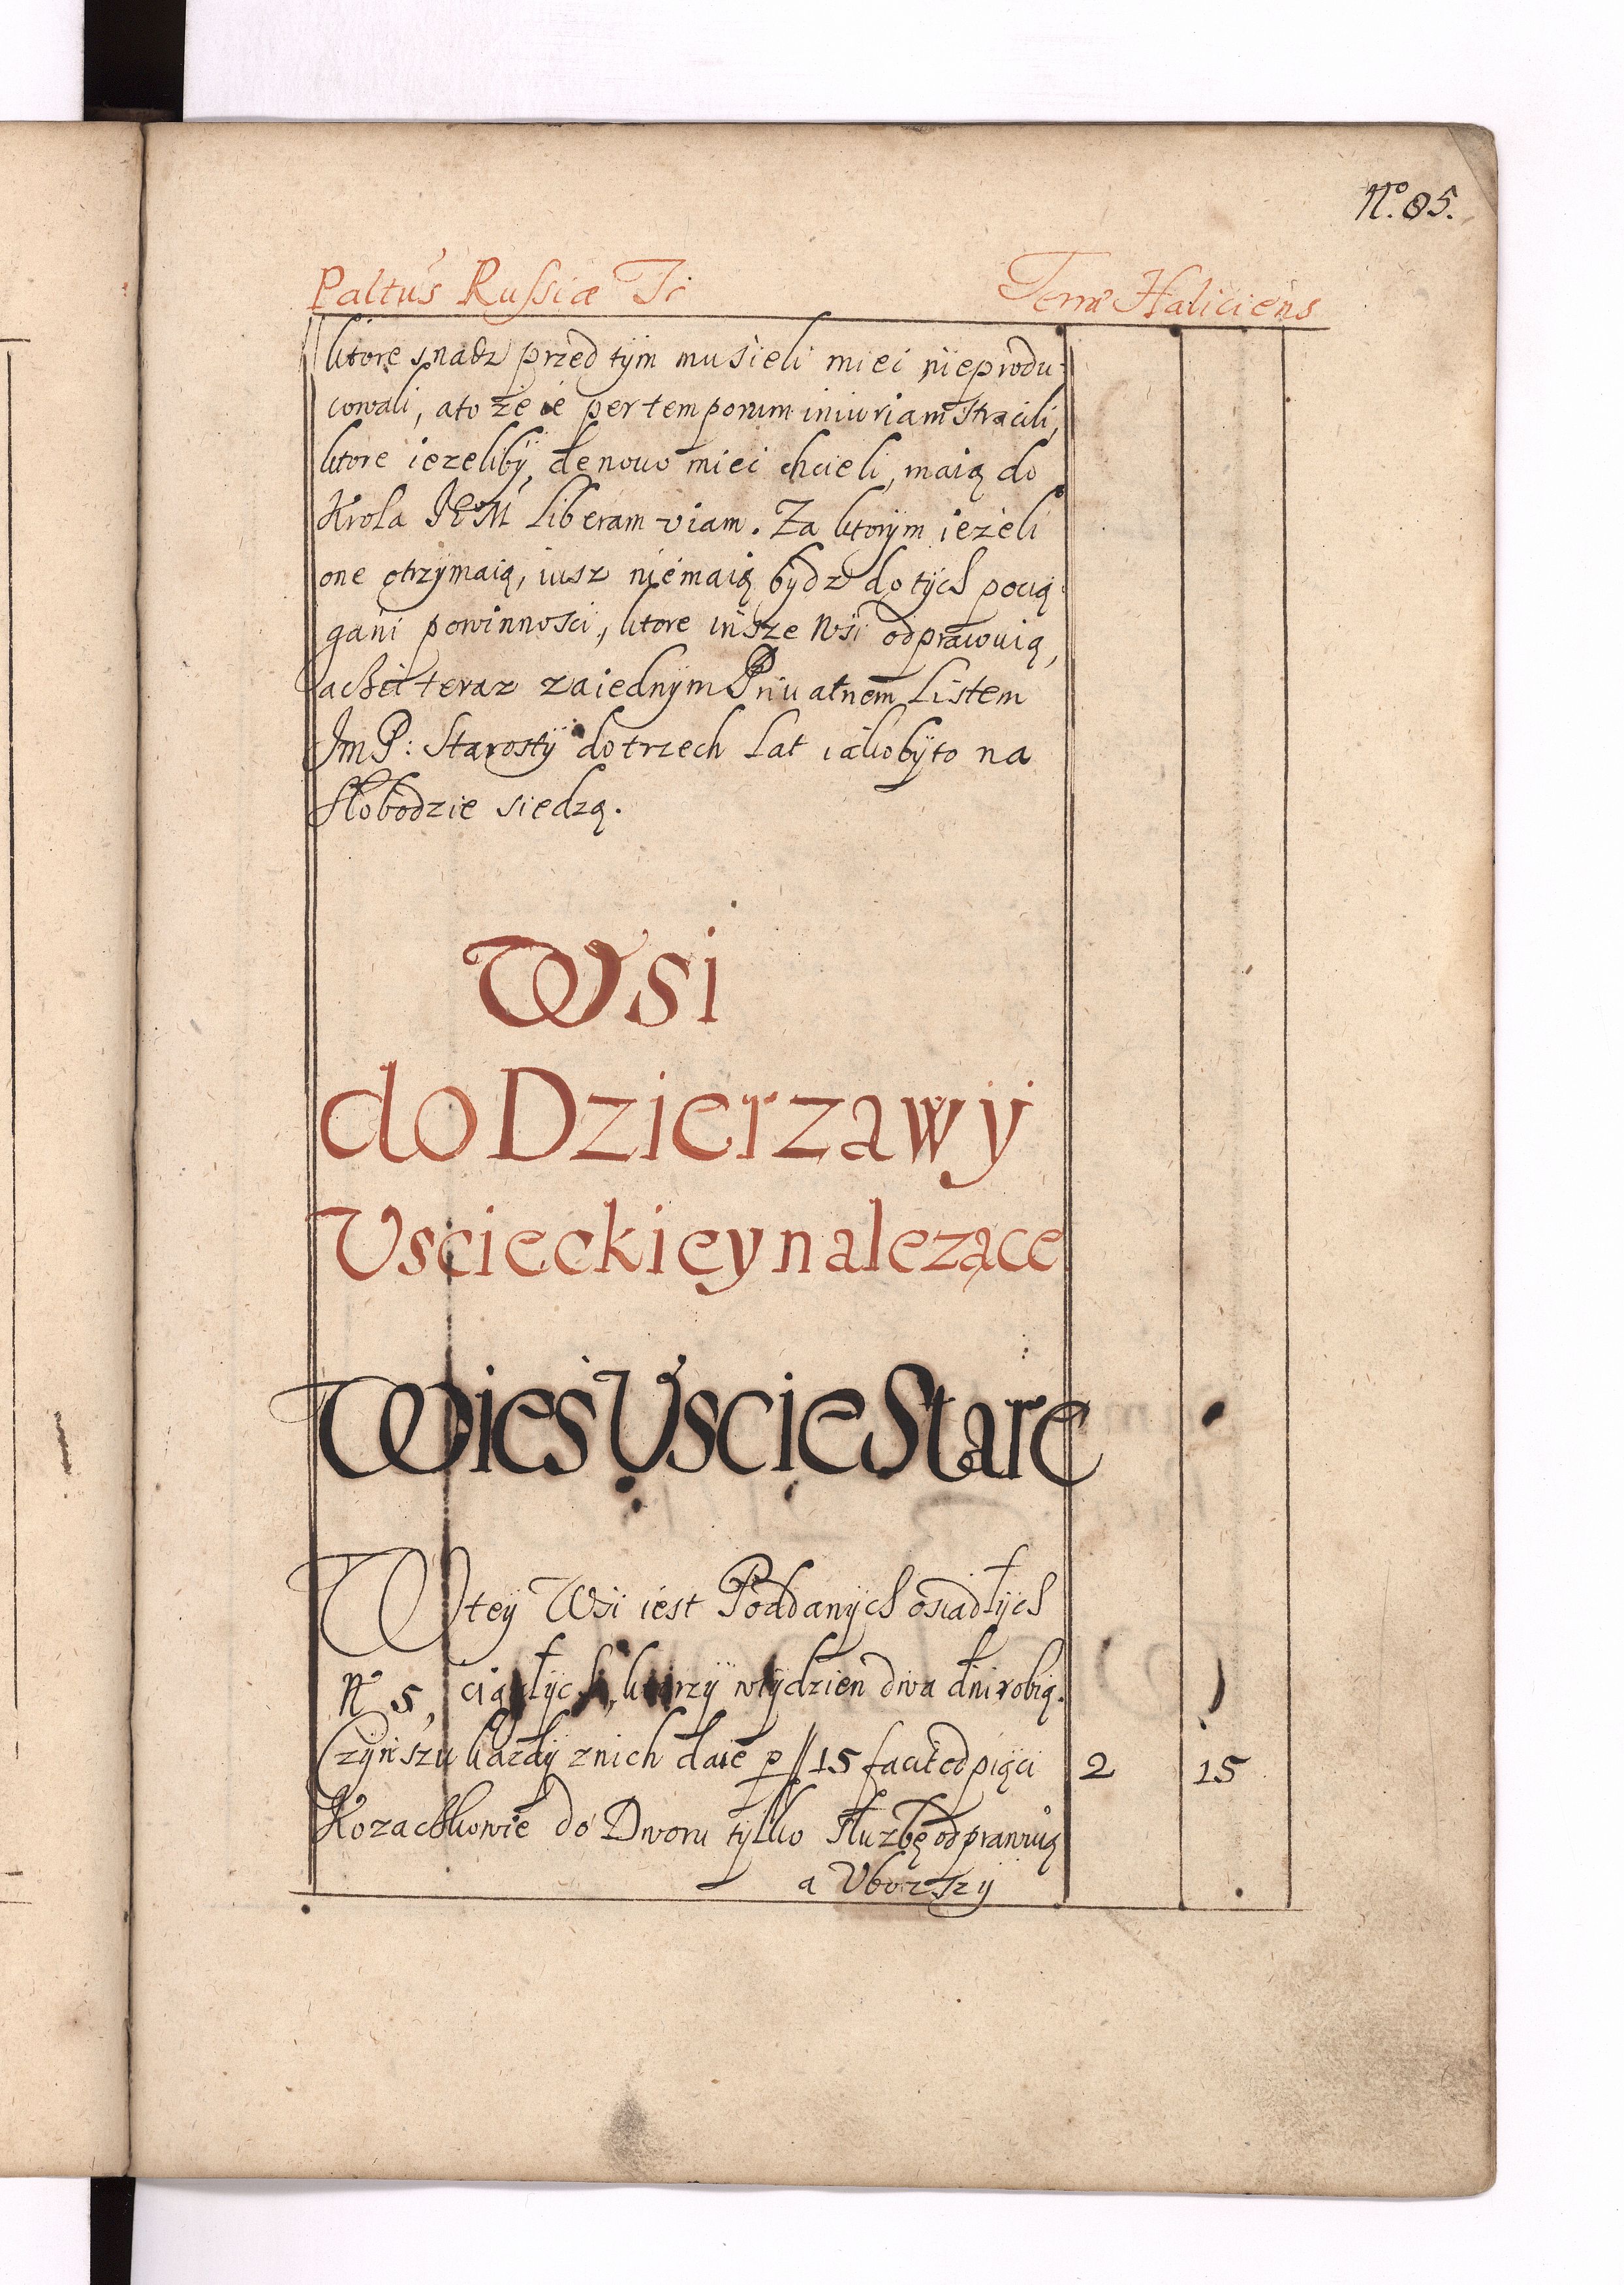 No. 85.
Paltus Russiæ
Terræ Haliciens
ktore snadz przed tÿm musieli miec nieprodu:
cowali, ato że ie per temporum iniuriam stracili,
ktore iezelibÿ, de nouo miec chcieli, maią do
Krola JEM liberam viam. Za ktorÿm ieżeli
one otrzÿmaią, iusz niemaią bÿdz do tÿch pocią:
gani powinnosci, ktore insze Wsi odprawuią,
acheć teraz za iednÿm Priuatnem Listem
Jm P: Starostÿ do trzech Lat iakobÿ to na
Słobodzie siedzą.
Wsi
do Dzierzawy
Uscieckiey nalezące
Wies Uscie Stare
W teÿ Wsi iest Poddanÿch osiadłÿch
No 5, ciągłÿch, ktorzÿ w tÿdzien dwa dni robią.
Czÿnszu kazdÿ z nich daie p 15 facit od pięci
2 15
Kozaczkowie do Dworu tÿlko Służbę odprawuią
a Vborszÿ